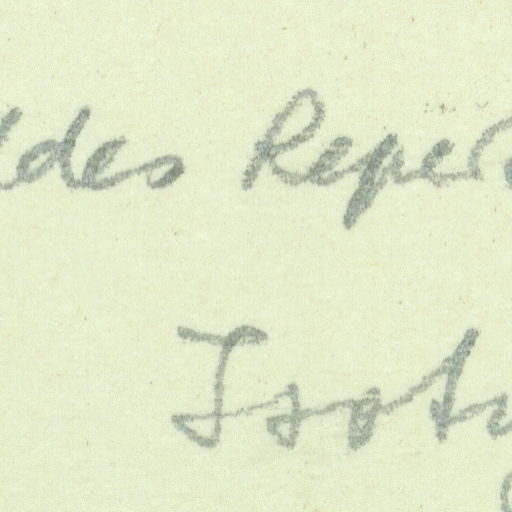 des Reper
Isot